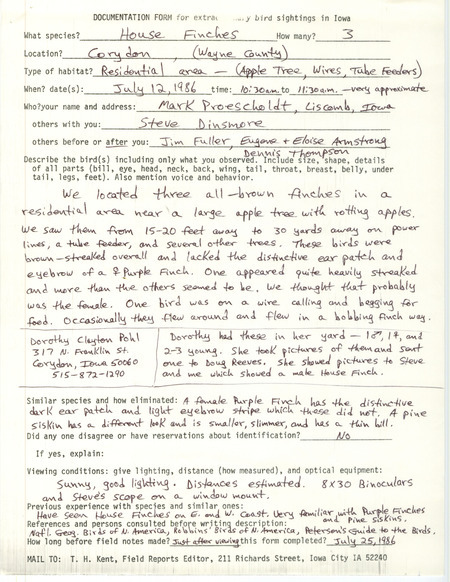 DOCUMENTATION FORM for extraordinary bird sightings in Iowa
What species? House Finches How many? 3
Location? Corydon, (Wayne County)
Type of habitat? Residential area — (Apple Tree, Wires, Tube Feeders)
When? date(s): July 12, 1986 time: 10:30 a.m. to 11:30 a.m. — very approximate
Who? your name and address: Mark Proescholdt, Liscomb, Iowa
others with you: Steve Dinsmore
others before or after you: Jim Fuller, Eugene & Eloise Armstrong
Dennis Thompson
Describe the bird(s) including only what you observed. Include size, shape, details
of all parts (bill, eye, head, neck, back, wing, tail, throat, breast, belly, under
tail, legs, feet). Also mention voice and behavior.
We located three all-brown finches in a
residential area near a large apple tree with rotting apples.
We saw them from 15-20 feet away to 30 yards away on power
lines, a tube feeder, and several other trees. These birds were
brown-streaked overall and lacked the distinctive ear patch and
eyebrow of a Purple Finch. One appeared quite heavily streaked
and more than the others seemed to be. We thought that probably
was the female. One bird was on a wire calling and begging for
food. Occasionally they flew around and flew in a bobbing finch way.
Dorothy Clayton Pohl
317 N. Franklin St.
Corydon, Iowa 50060
515-872-1290
Dorothy had these in her yard — 1♂, 1♀, and
2-3 young. She took pictures of them and sent
one to Doug Reeves. She showed pictures to Steve
and me which showed a male House Finch.
Similar species and how eliminated: A female Purple Finch has the distinctive
dark ear patch and light eyebrow stripe which these did not. A pine
siskin has a different look and is smaller, slimmer, and has a thin bill.
Did any one disagree or have reservations about identification? No
If yes, explain:
Viewing conditions: give lighting, distance (how measured), and optical equipment:
Sunny, good lighting. Distances estimated. 8X30 Binoculars
and Steve's scope on a window mount.
Previous experience with species and similar ones:
Have seen House Finches on E. and W. Coast. Very familiar with Purple Finches
and Pine Siskins.
References and persons consulted before writing description:
Nat'l. Geog. Birds of N. America, Robbins' Birds of N. America, Peterson's Guide to the Birds.
How long before field notes made? Just after viewing this form completed? July 25, 1986
MAIL TO: T. H. Kent, Field Reports Editor, 211 Richards Street, Iowa City IA 52240